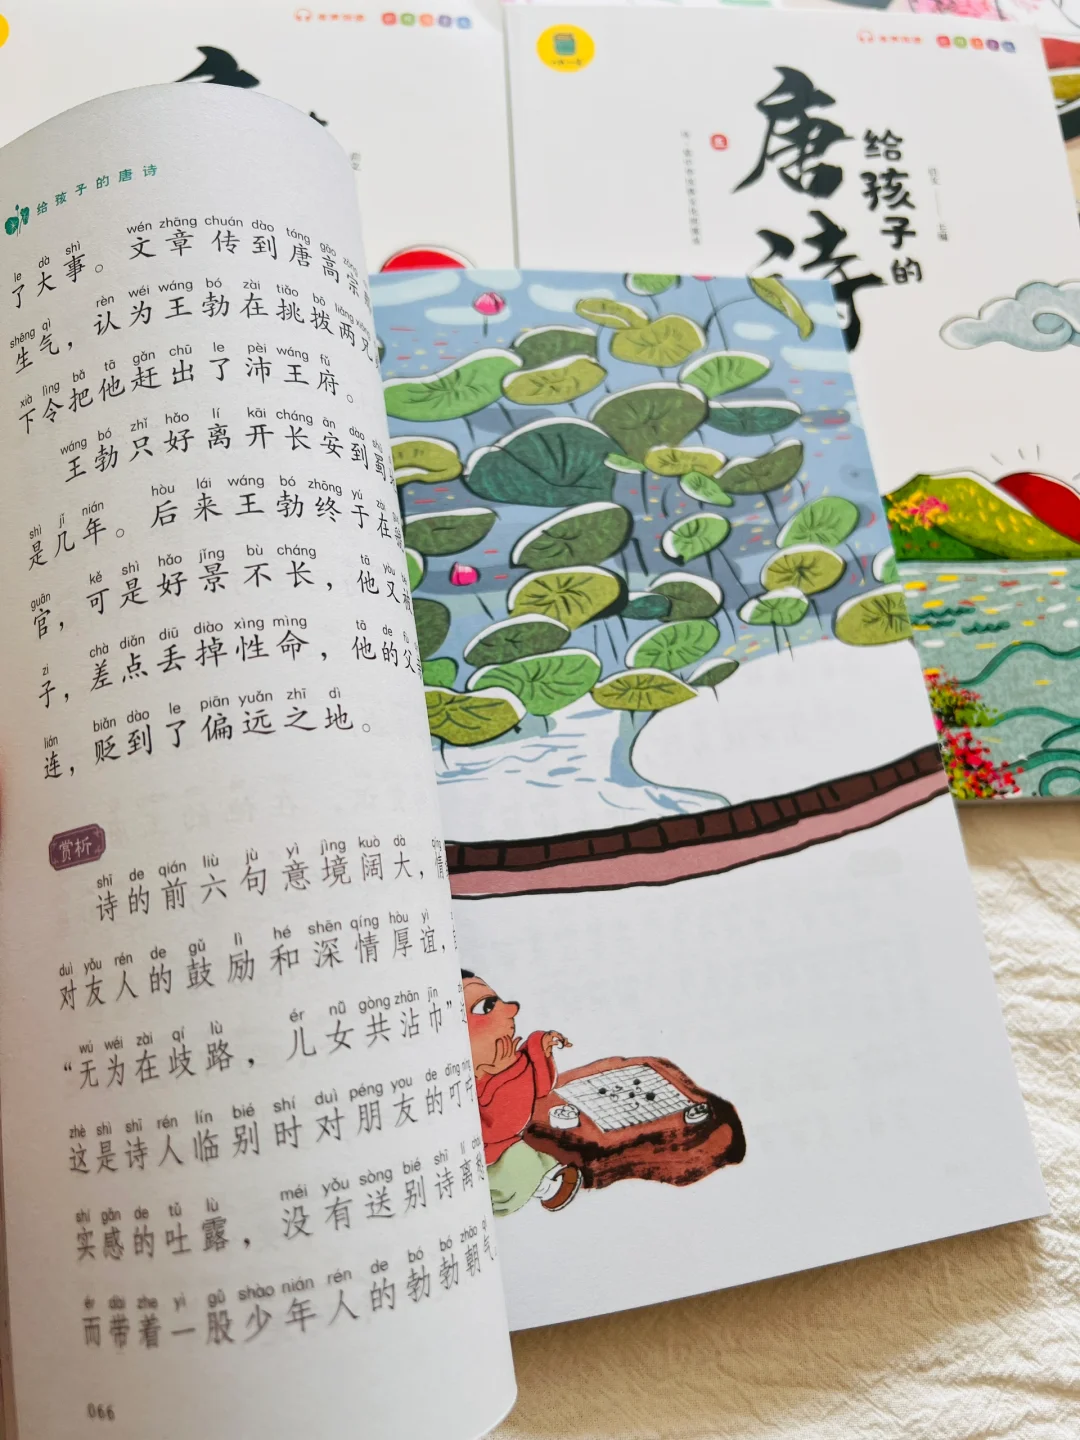 给孩子的唐诗
le dà shì wén zhāng chuán dào táng gāo zōng
了大事。文章传到唐高宗
shēng qì rèn wéi wáng bó zài tiǎo bō liǎng xiōng
生气，认为王勃在挑拨两兄
xià lìng bǎ tā gǎn chū le pèi wáng fǔ
下令把他赶出了沛王府。
wáng bó zhǐ hǎo lí kāi cháng ān dào shǔ
王勃只好离开长安到蜀
shì jǐ nián hòu lái wáng bó zhōng yú zài
是几年。后来王勃终于在
guān kě shì hǎo jǐng bù cháng tā yòu bèi
官，可是好景不长，他又被
zi chà diǎn diū diào xìng mìng tā de fù
子，差点丢掉性命，他的父
lián biǎn dào le piān yuǎn zhī dì
连，贬到了偏远之地。
赏析
shī de qián liù jù yì jìng kuò dà qíng
诗的前六句意境阔大，情
duì yǒu rén de gǔ lì hé shēn qíng hòu yì
对友人的鼓励和深情厚谊，
wú wéi zài qí lù ér nǚ gòng zhān jīn
“无为在歧路，儿女共沾巾”
zhè shì shī rén lín bié shí duì péng you de dīng níng
这是诗人临别时对朋友的叮咛
shí gǎn de tǔ lù méi yǒu sòng bié shī lí chóu
实感的吐露，没有送别诗离愁
ér dài zhe yì gǔ shào nián rén de bó bó zhāo qì
而带着一股少年人的勃勃朝气
066
唐诗
给孩子的
主编